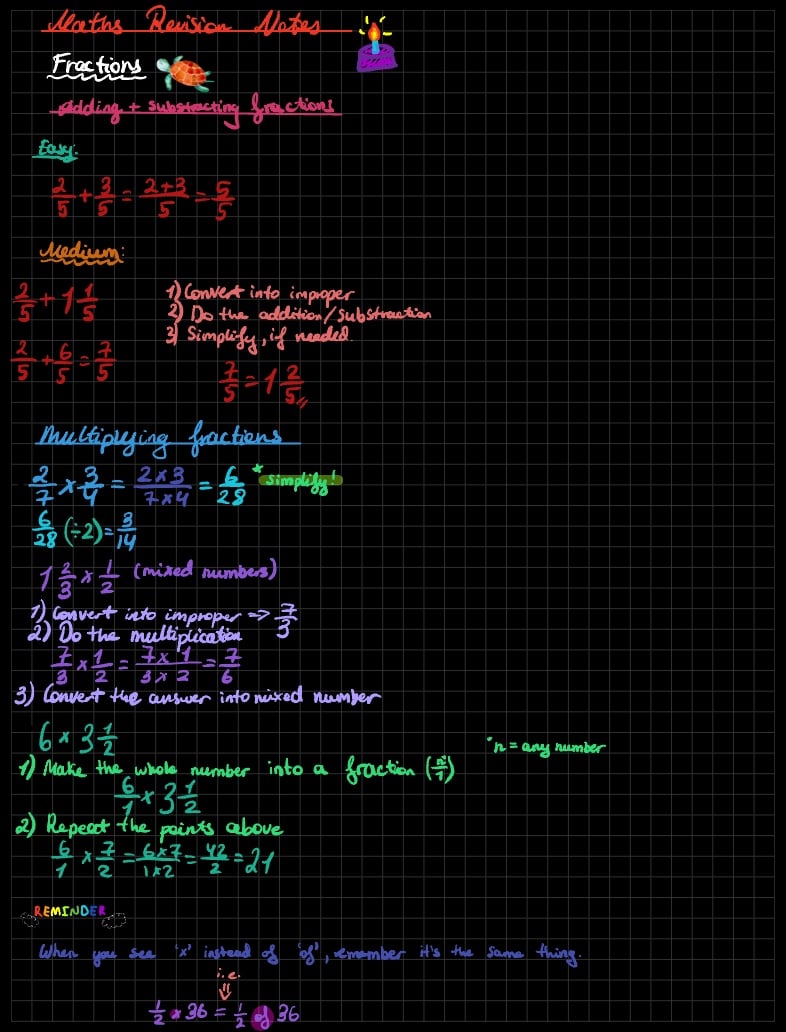 Maths Revision Notes
Fractions
adding + substracting fractions
Easy:
2/5 + 3/5 = 2+3/5 = 5/5
Medium:
2/5 + 1 1/5
1) Convert into improper
2) Do the addition/substraction
3) Simplify, if needed.
2/5 + 6/5 = 7/5
7/5 = 1 2/5 //
Multiplying fractions
2/7 × 3/4 = 2×3/7×4 = 6/28 * simplify!
6/28 (÷2) = 3/14
1 2/3 × 1/2 (mixed numbers)
1) Convert into improper => 7/3
2) Do the multiplication
7/3 × 1/2 = 7×1/3×2 = 7/6
3) Convert the answer into mixed number
6 × 3 1/2
*n = any number
1) Make the whole number into a fraction (n*/1)
6/1 × 3 1/2
2) Repeat the points above
6/1 × 7/2 = 6×7/1×2 = 42/2 = 21
REMINDER
When you see 'x' instead of 'of', remember it's the same thing.
i.e.
⇓
1/2 × 36 = 1/2 of 36